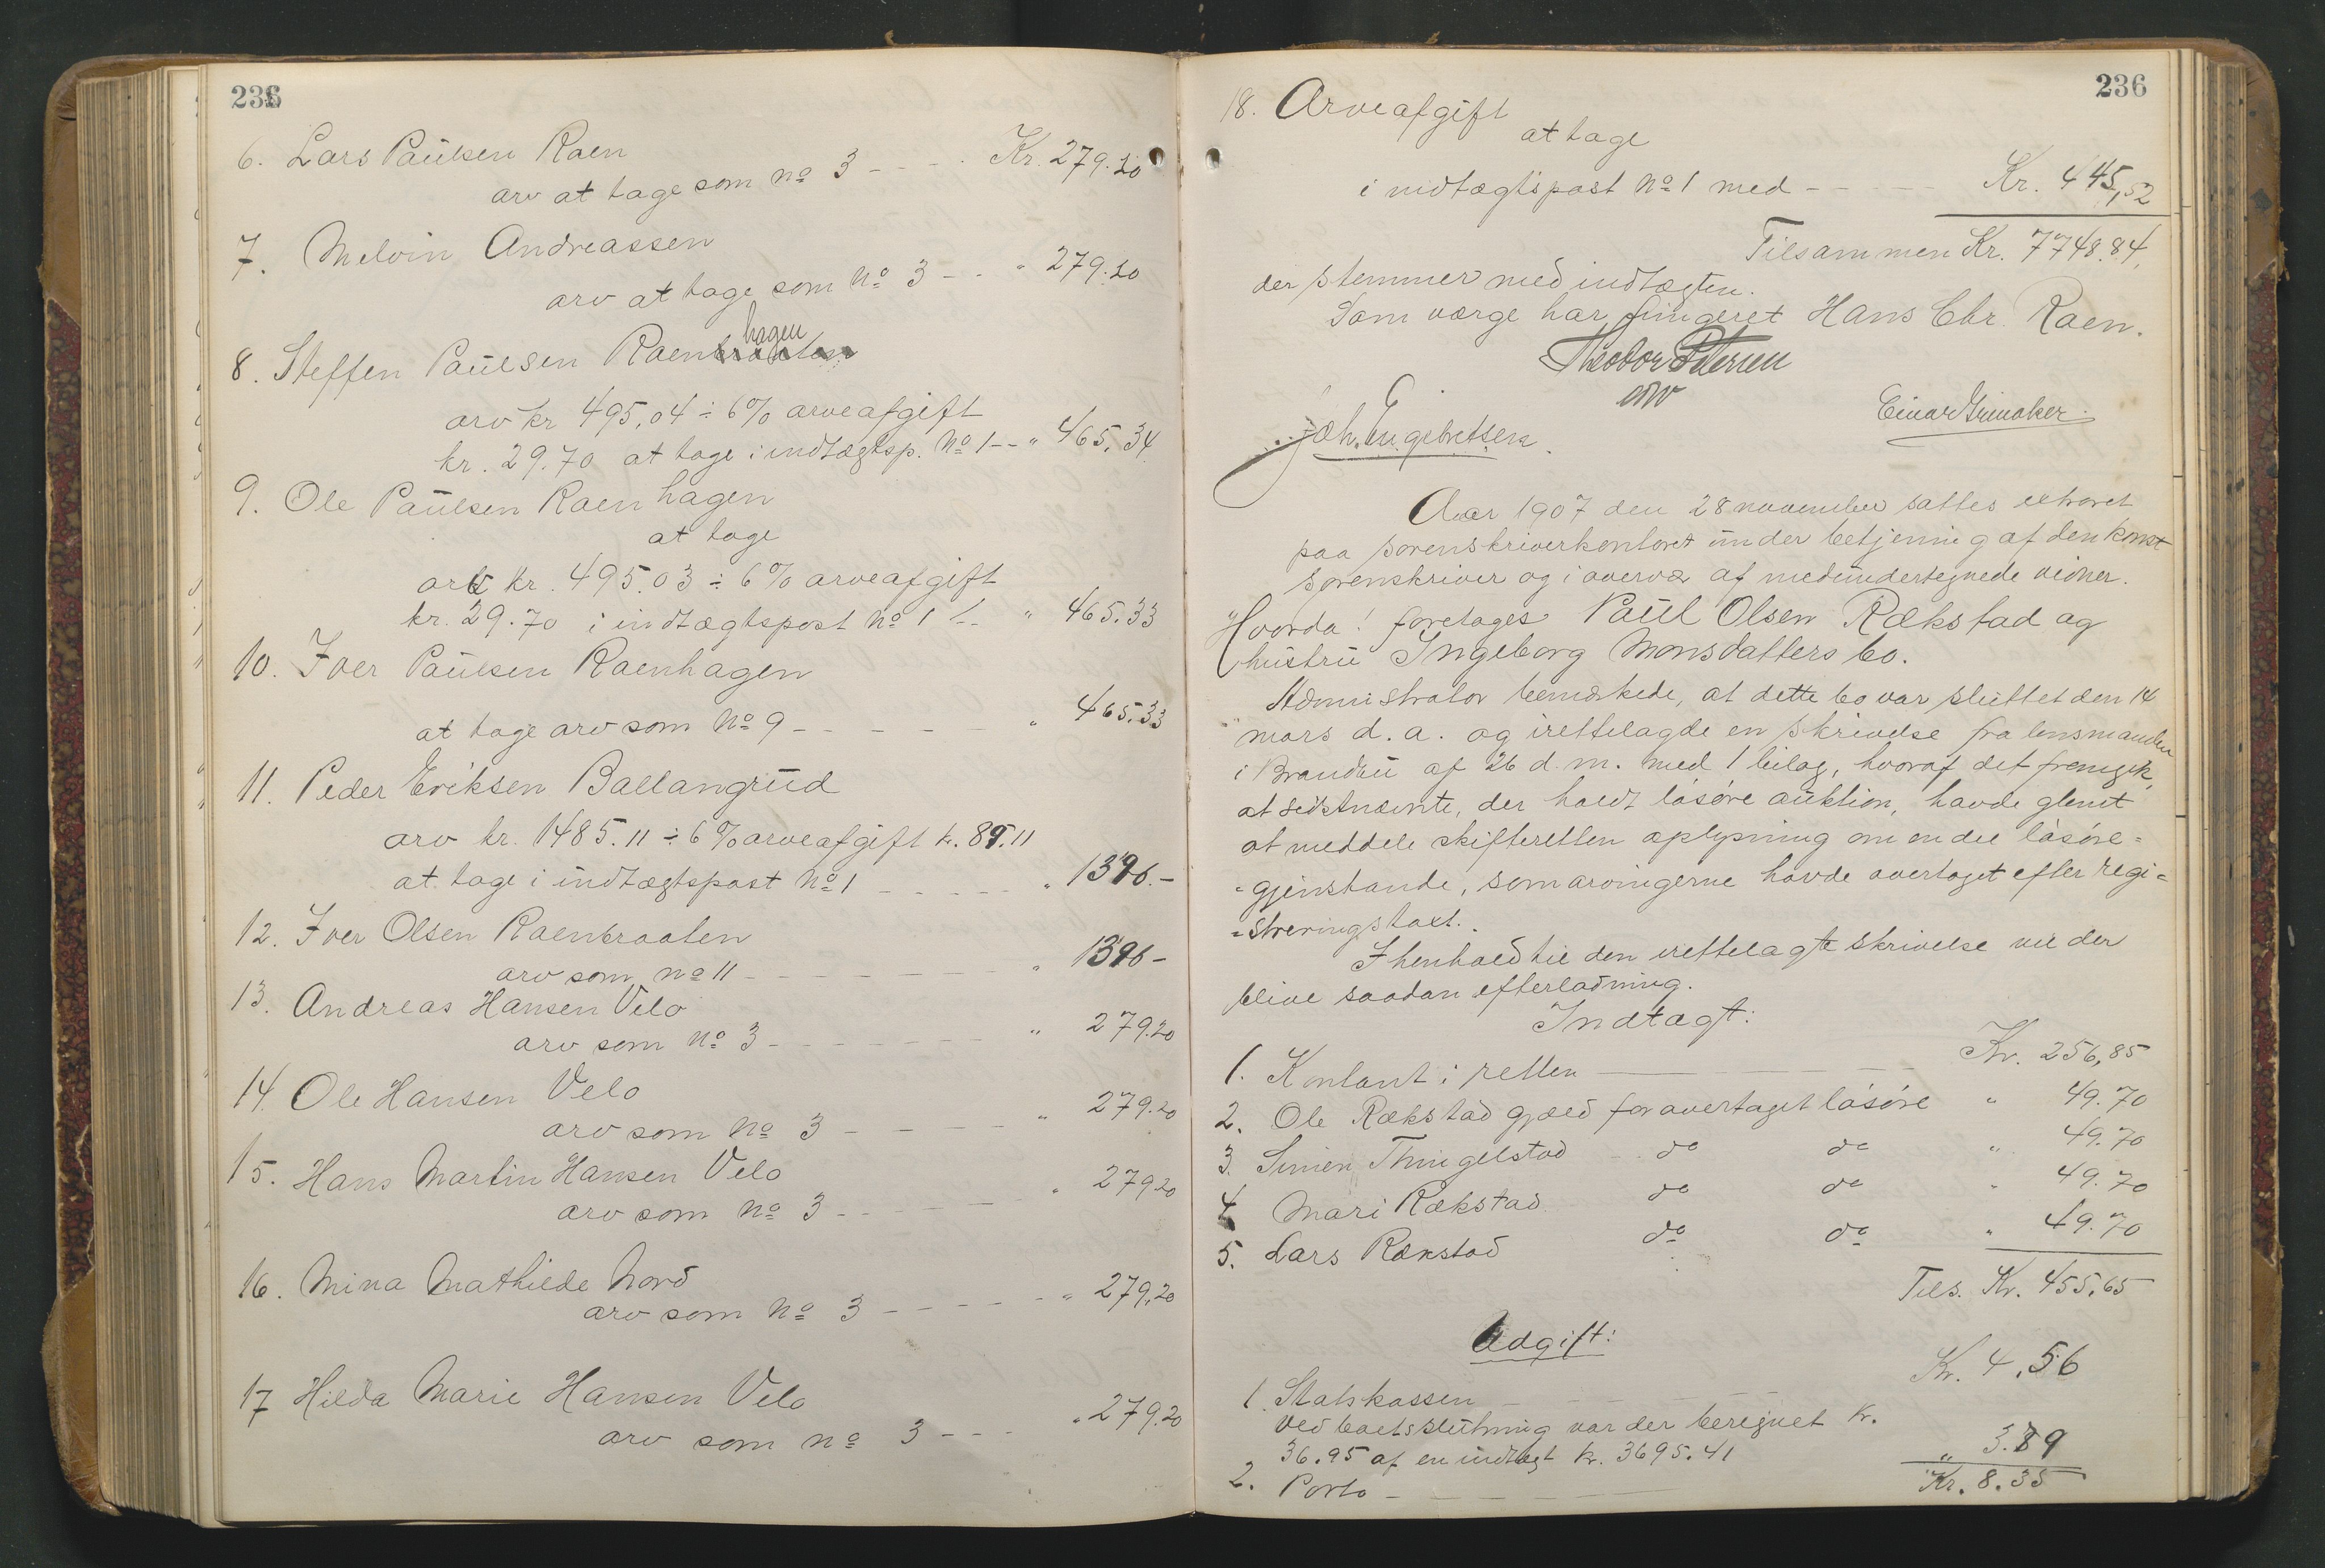 236
6. Lars Paulsen Raen
arv at tage som No 3 - - - Kr. 279.20
7. Melvin Andreassen
arv at tage som No 3 - - " 279.20
hagen
8. Steffen Paulsen Raenbraaten
arv kr 495,04 ÷ 6% arveafgift
kr. 29.70 at tage i indtægtsp. No 1 - - " 465.34
9. Ole Paulsen Raenhagen
at tage
arv kr. 495.03 ÷ 6% arveafgift
kr. 29.70 i indtægtspost No 1 - - " 465.33
10. Iver Paulsen Raenhagen
at tage arv som No 9 - - - - - " 465.33
11. Peder Eriksen Ballangrud
arv kr. 1485.11 ÷ 6% arveafgift k. 89.11
at tage i indtægtspost No 1 - - - - - " 1396.-
12. Iver Olsen Raenbraaten
arv som No 11 - - - - - - - - " 1396 -
13. Andreas Hansen Velo
arv som No 3 - - - - - - - " 279.20
14. Ole Hansen Velo
arv som No 3 - - - - - " 279.20
15. Hans Martin Hansen Velo
arv som No 3 - - - - - " 279.20
16. Mina Mathilde Nord
arv som No 3 - - - - - " 279,20
17 Hilda Marie Hansen Velo
arv som No 3 - - - " 279.20
236
18. Arveafgift
at tage
i indtægtspost No 1 med - - - - Kr. 445,52
Tilsammen Kr. 7748.84.
der stemmer med indtægten.
Som værge har fungeret Hans Chr. Raen.
Theodor Petersen
const
Joh. Engebretsen.
Einar Grinaker.
Aar 1907 den 28 november sattes extraret
paa sorenskriverkontoret under betjening af den konst
sorenskriver og i overvær af medundertegnede vidner.
Hvorda! foretages Paul Olsen Rækstad og
hustru Ingeborg Monsdatters bo.
Administrator bemærkede, at dette bo var sluttet den 14
mars d. a. og irettelagde en skrivelse fra lensmanden
i Brandbu af 26 d. m. med 1 bilag, hvoraf det fremgik,
at sidstnævnte, der holdt løsøre auktion, havde glemt
at meddele skifteretten oplysning om en del løsøre=
=gjenstande, som arvingerne havde overtaget efter regi=
=streringstaxt.
I henhold til den irettelagte skrivelse vil der
blive saadan efterlodning.
Indtægt:
1. Kontant i retten - - - Kr. 256,85
2. Ole Rækstad gjæld for overtaget løsøre " 49.70
3. Simen Thingelstad do do " 49.70
4 Mari Rækstad do do " 49.70
5. Lars Rækstad do do " 49.70
Tils. Kr. 455.65
Udgift:
1. Statskassen - - - - Kr. 4.56
Ved boets slutning var der beregnet kr.
36.95 af en indtægt kr. 3695.41
2. Porto - - - - " 3.79
Kr. 8.35